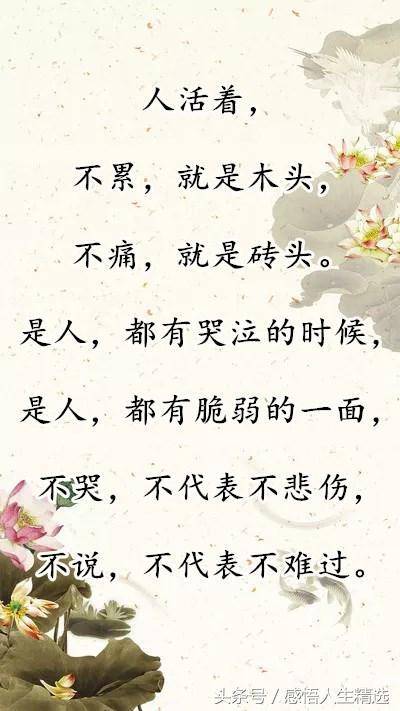 人活着，
不累，就是木头，
不痛，就是砖头。
是人，都有哭泣的时候，
是人，都有脆弱的一面，
不哭，不代表不悲伤，
不说，不代表不难过。
头条号 / 感悟人生精选